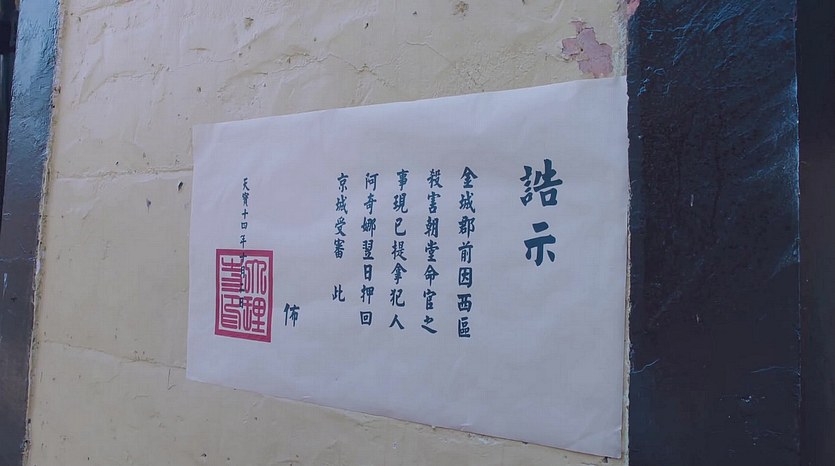 誥示
金城郡前因西區
殺害朝堂命官之
事現已提拿犯人
阿奇娜翌日押回
京城受審 此
佈
天寶十四年十
大理
寺印